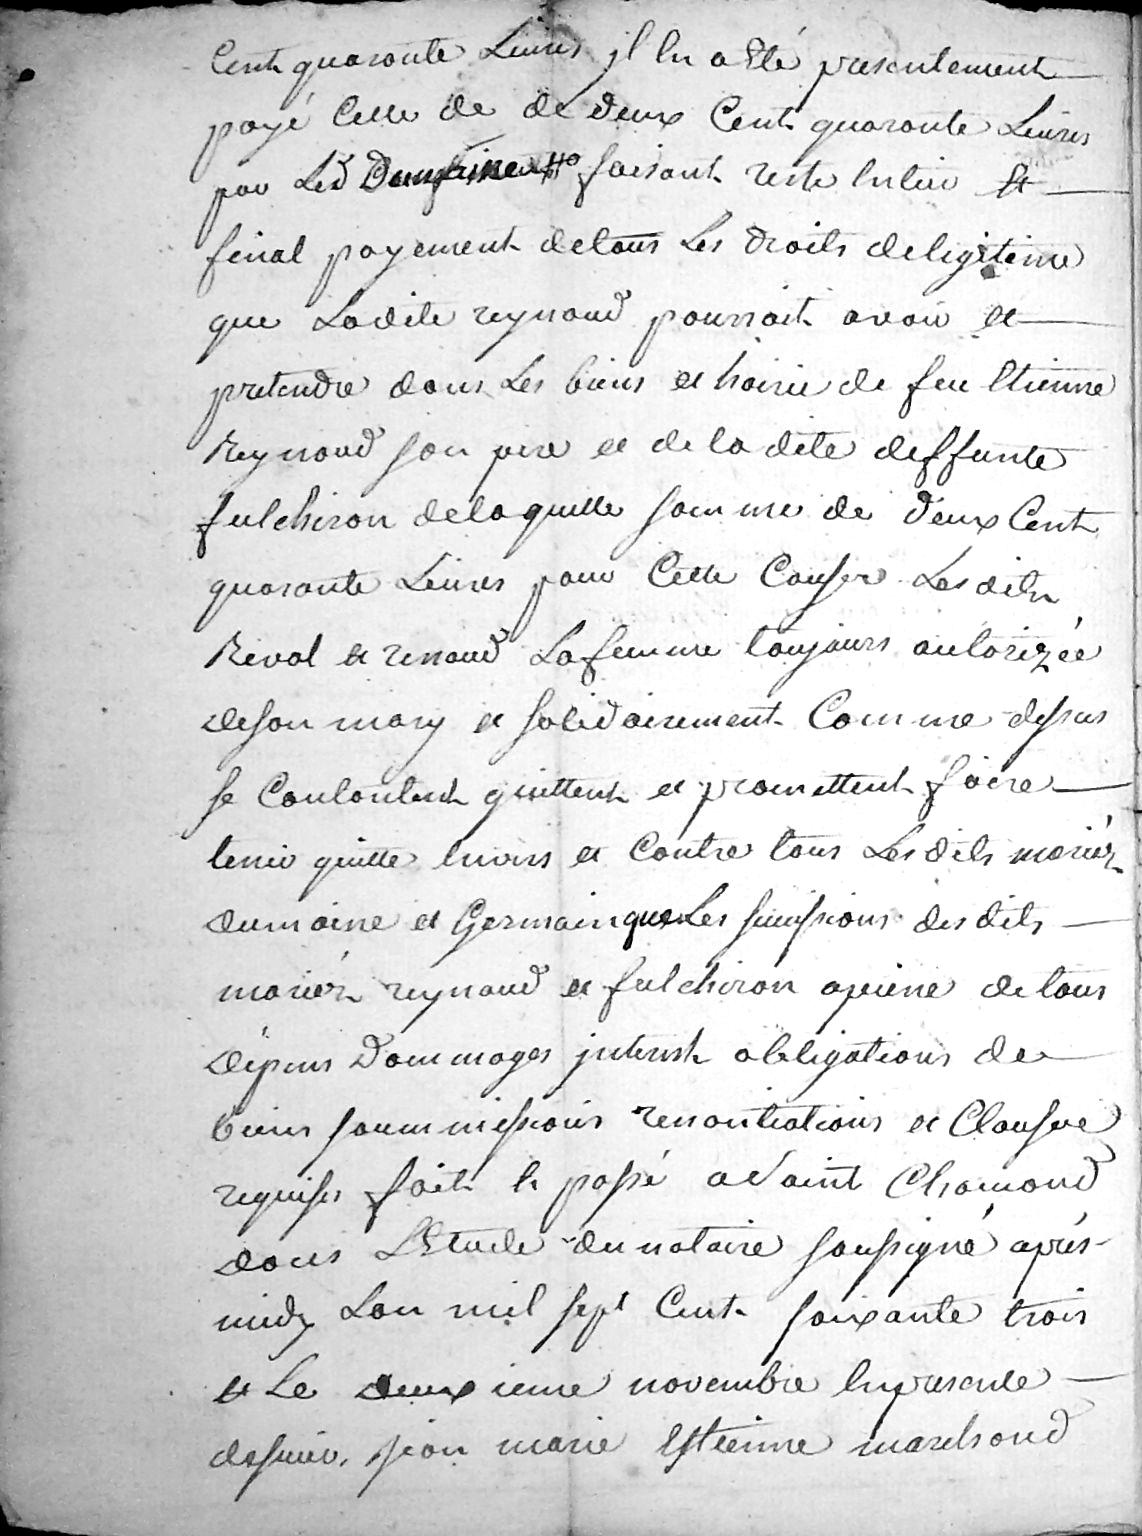 Cent quarante Livres il lui a Eté presentement
payé Celle de de deux Cent quarante Livres
par Led faisant reste Entier et
final payement de tous Les droits de legitime
que Ladite reynaud pourrait avoir et
pretendre dans Les biens et hoirie de feu Etienne
Reynaud son pere et de la dite deffunte
fulchiron de laquelle somme de deux Cent
quarante Livres pour Cette Cause Lesdits
Reval et renaud La femme toujours autorizée
de son mary et solidairement Comme dessus
se Contentent quittent et promettent faire
tenir quitte Envers et Contre tous Lesdits mariéz
dumaine et Germain que Les desdits
mariéz reynaud et fulchiron apeine de tous
dépens Dommages interest obligations de
biens soummissions renontiations et Clause
requises fait et passé a Saint Chamond
dans L'Etude du notaire soussigné aprés
midy Lan mil sept Cent soixante trois
et Le deuxieme novembre En presence
de sieur jean marie Estienne marchand